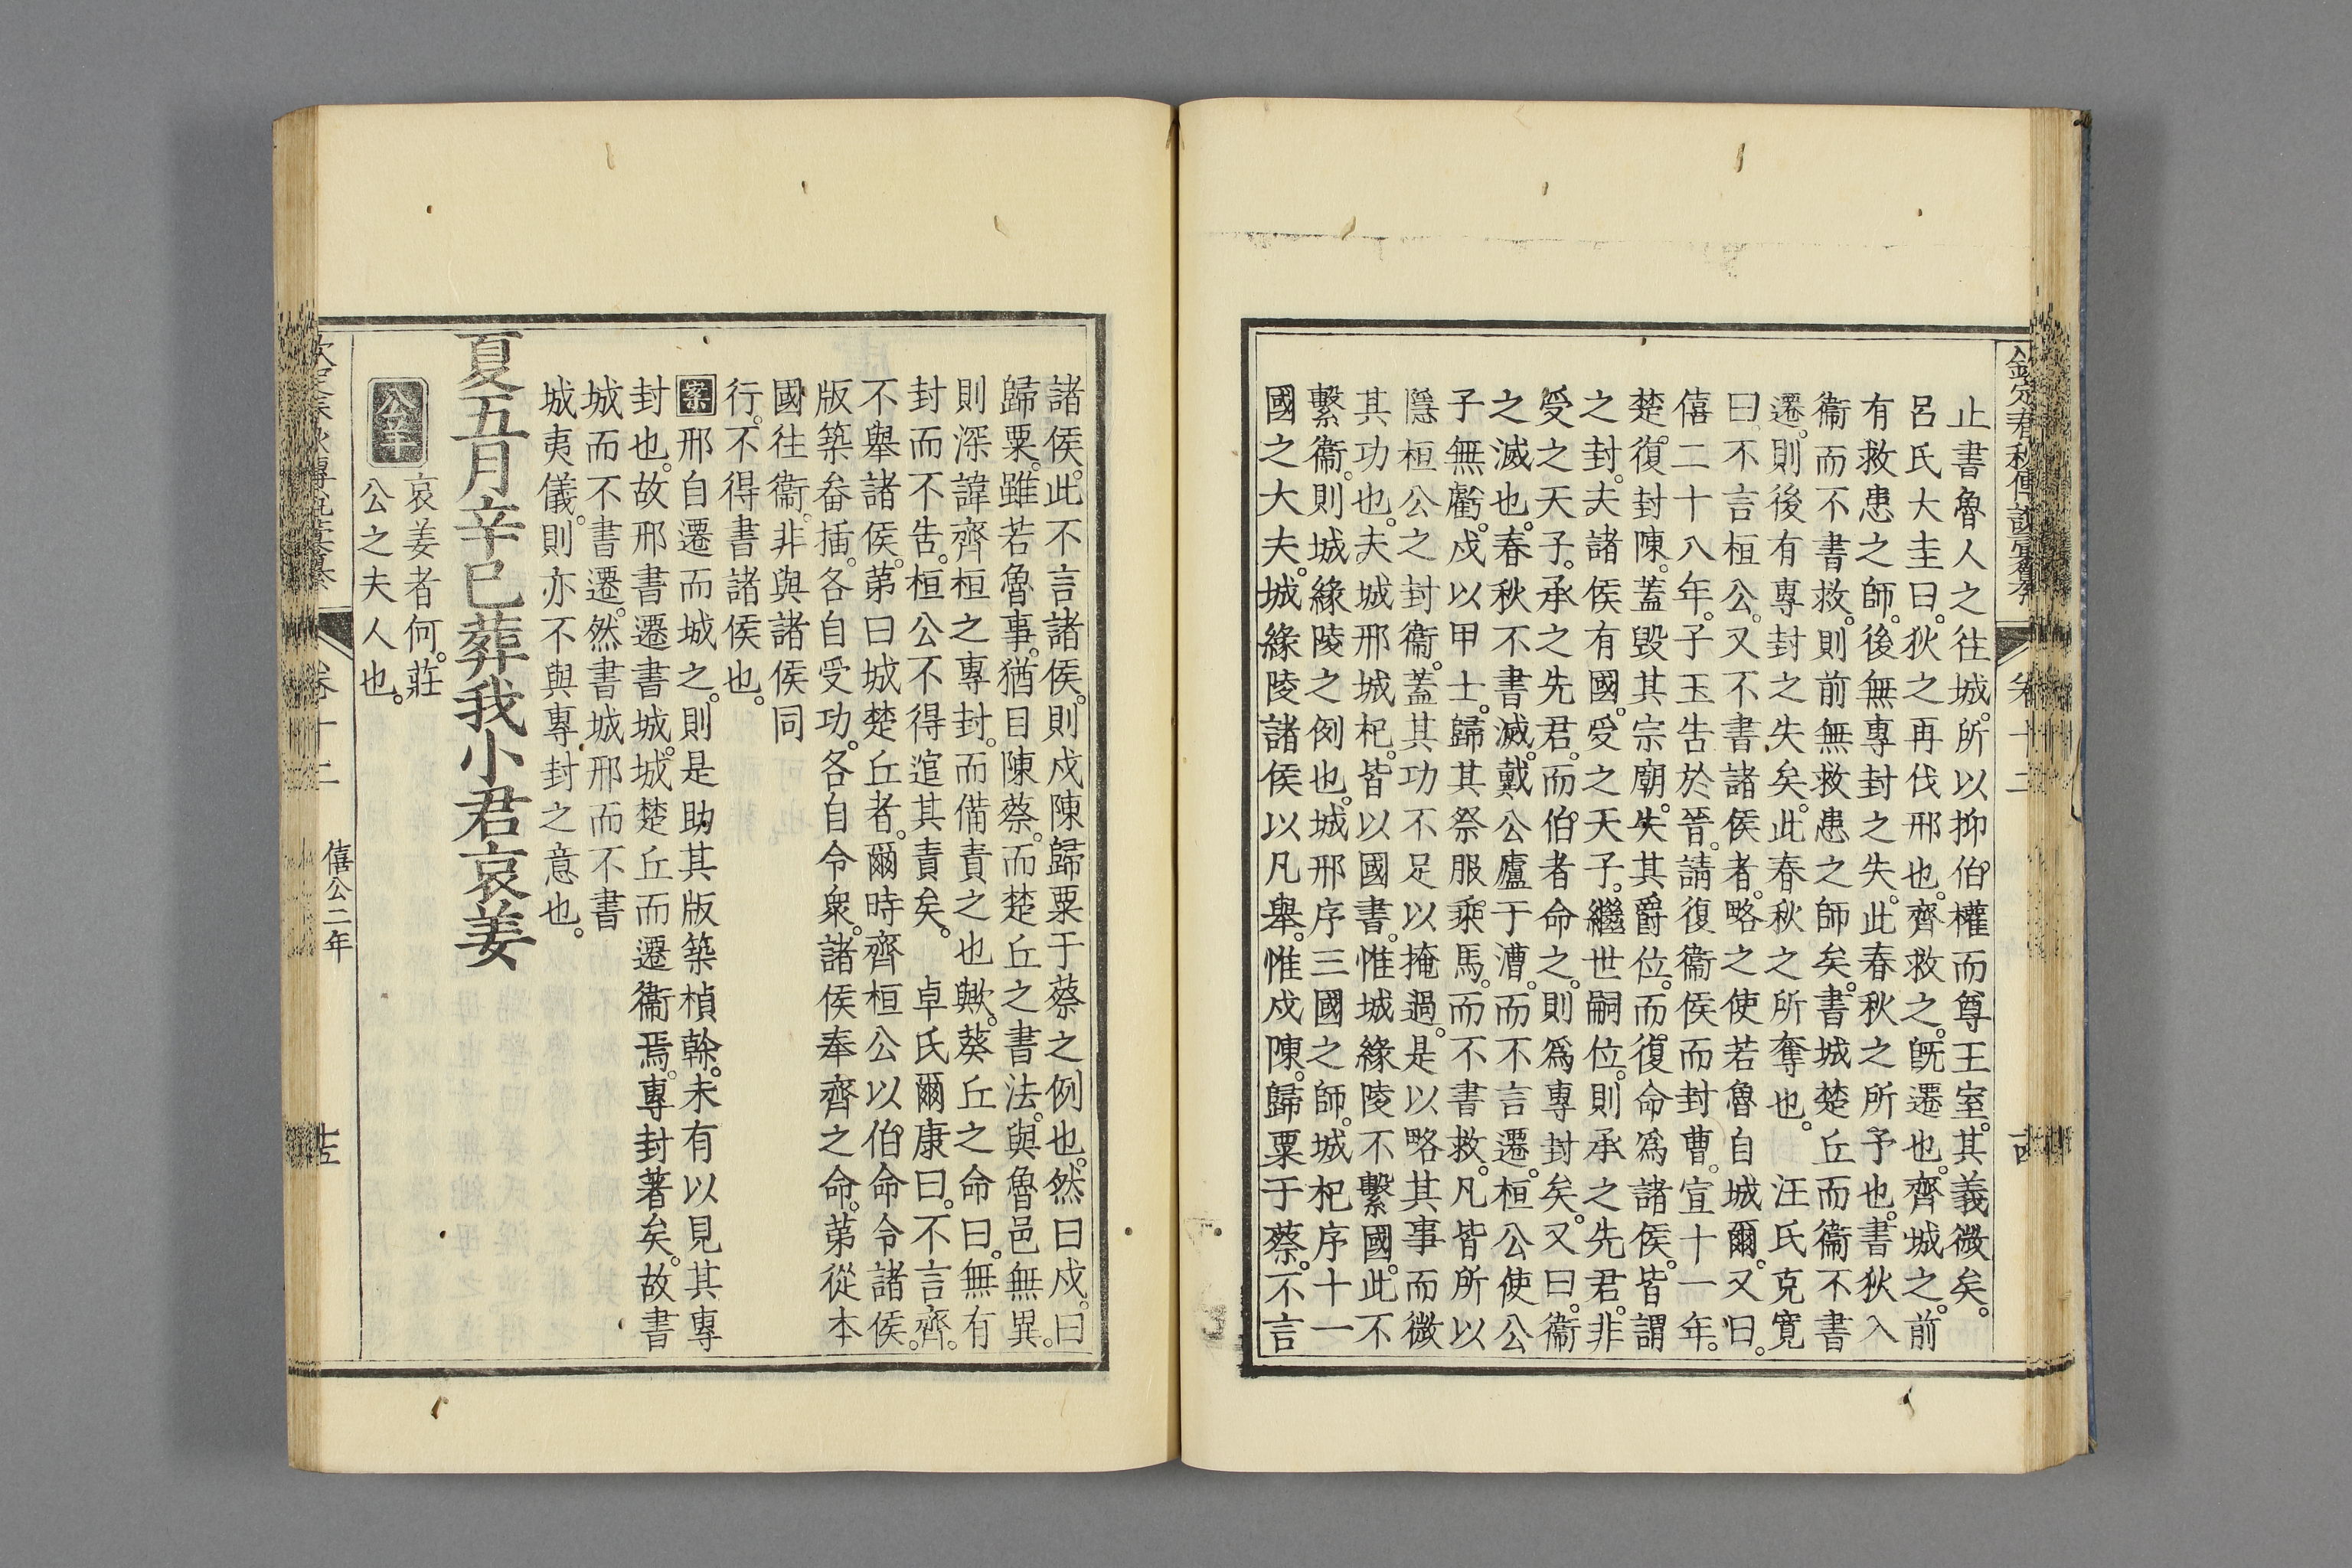 止書魯人之往城。所以抑伯權而尊王室。其義微矣。
呂氏大圭曰。狄之再伐邢也。齊救之。旣遷也。齊城之。前
有救患之師。後無專封之失。此春秋之所予也。書狄入
衞而不書救。則前無救患之師矣。書城楚丘而衞不書
遷。則後有專封之失矣。此春秋之所奪也。 汪氏克寬
曰。不言桓公。又不書諸侯者。略之使若魯自城爾。又曰。
僖二十八年。子玉告於晉。請復衞侯而封曹。宣十一年。
楚復封陳。蓋毀其宗廟。失其爵位。而復命爲諸侯。皆謂
之封。夫諸侯有國。受之天子。繼世嗣位。則承之先君。非
受之天子。承之先君。而伯者命之。則爲專封矣。又曰。衞
之滅也。春秋不書滅。戴公廬于漕。而不言遷。桓公使公
子無虧。戍以甲士。歸其祭服乘馬。而不書救。凡皆所以
隱桓公之封衞。蓋其功不足以掩過。是以略其事而微
其功也。夫城邢城杞。皆以國書。惟城緣陵不繫國。此不
繫衞。則城緣陵之例也。城邢序三國之師。城杞序十一
國之大夫。城緣陵諸侯以凡舉。惟戍陳。歸粟于蔡。不言
諸侯。此不言諸侯。則戍陳歸粟于蔡之例也。然曰戍。曰
歸粟。雖若魯事。猶目陳蔡。而楚丘之書法。與魯邑無異。
則深諱齊桓之專封。而備責之也歟。葵丘之命曰。無有
封而不告。桓公不得逭其責矣。 卓氏爾康曰。不言齊。
不舉諸侯。第曰城楚丘者。爾時齊桓公以伯命令諸侯。
版築畚插。各自受功。各自令衆。諸侯奉齊之命。第從本
國往衞。非與諸侯同
行。不得書諸侯也。
案邢自遷而城之。則是助其版築楨幹。未有以見其專
封也。故邢書遷書城。城楚丘而遷衞焉。專封著矣。故書
城而不書遷。然書城邢而不書
城夷儀。則亦不與專封之意也。
夏五月辛巳葬我小君哀姜
公羊 哀姜者何。莊
公之夫人也。
卷十二 僖公二年